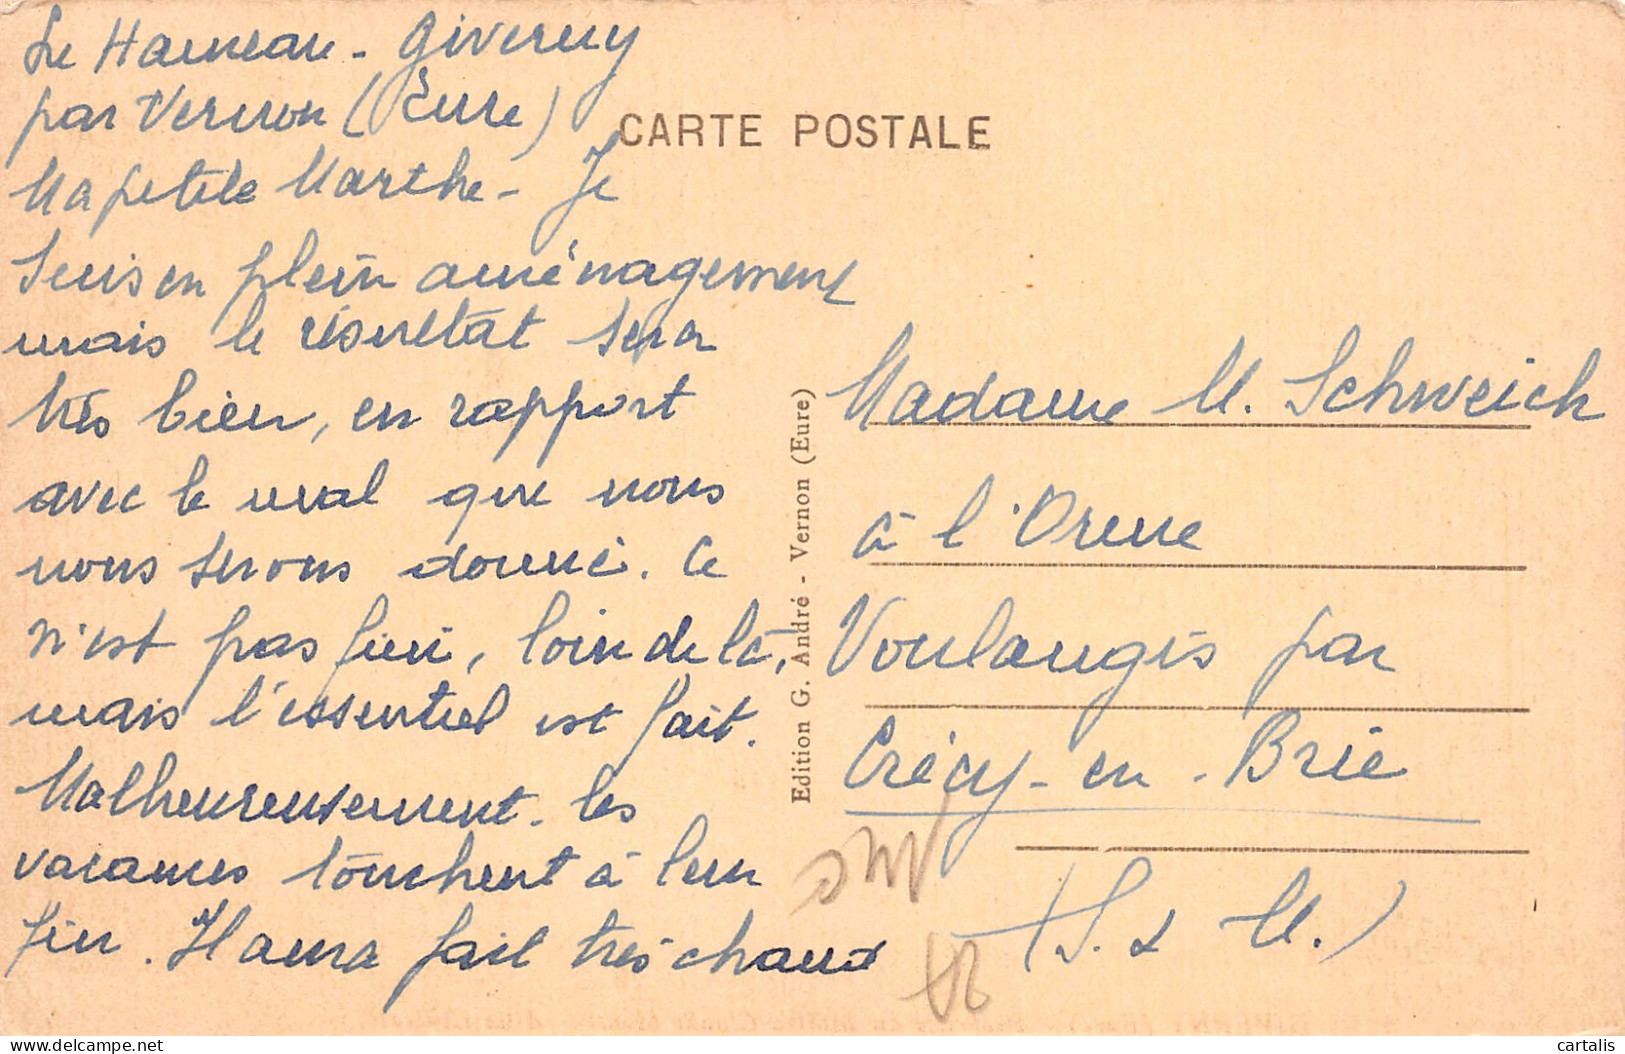 Le Hameau - Giverny
par Vernon (Eure)
Ma petite Marthe - Je
suis en plein aménagement
mais le résultat sera
très bien, en rapport
avec le mal que nous
nous serons donné. Ce
n'est pas fini, loin de là,
mais l'essentiel est fait.
Malheureusement - les
vacances touchent à leur
fin. Il aura fait très chaud
CARTE POSTALE
Edition G. André - Vernon (Eure)
Madame M. Schweich
à l'Orme
Voulangis par
Crécy-en-Brie
(S. & M.)
cartalis